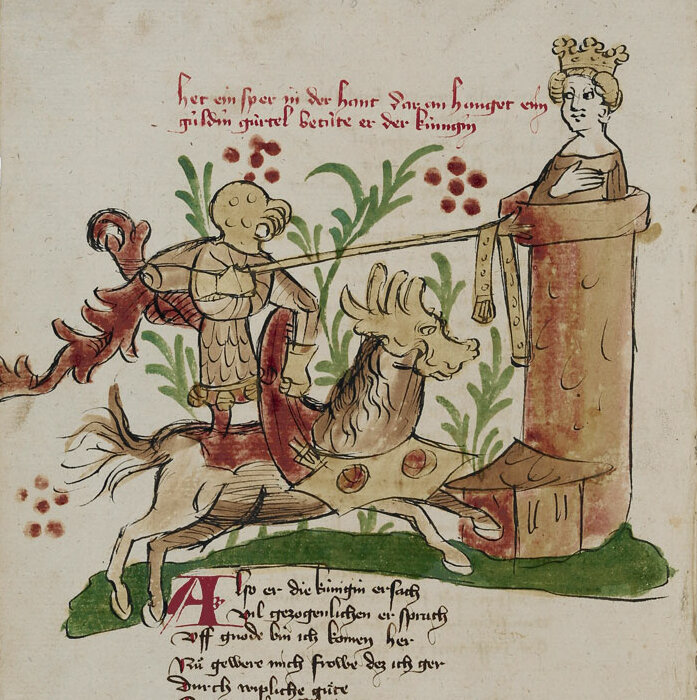 het ein sper in der hant dar an hanget ein
guldin gürtel betüte er der künigin
Also er die künigin ersach
Vil gezogenlichen er sprach
Vff gnode bin ich komen her
Nu gewere mich frowe dez ich ger
Durch wipliche güte